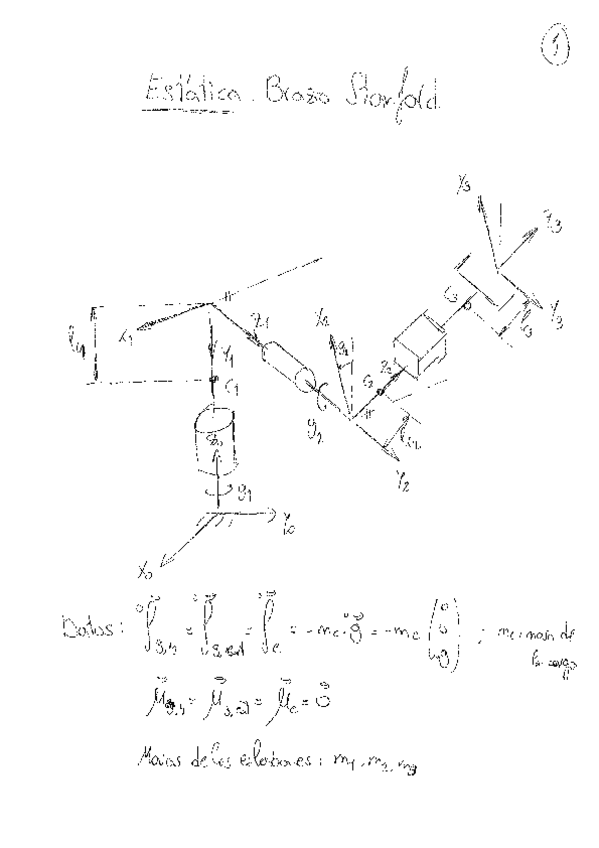 1
Estática. Brazo Stanford
Y3
Z3
C3
Y3
lc3
X2
q2
Z2
C2
lc2
Y2
q2
Z1
X1
lc1
Y1
C1
Z0
q1
Y0
X0
Datos: ⁰f3,4 = ⁰f3,ext = ⁰fc = -mc·⁰g = -mc (0 0 -g) ; mc: masa de la carga
μ3,4 = μ3,ext = μc = 0
Masas de los eslabones: m1, m2, m3